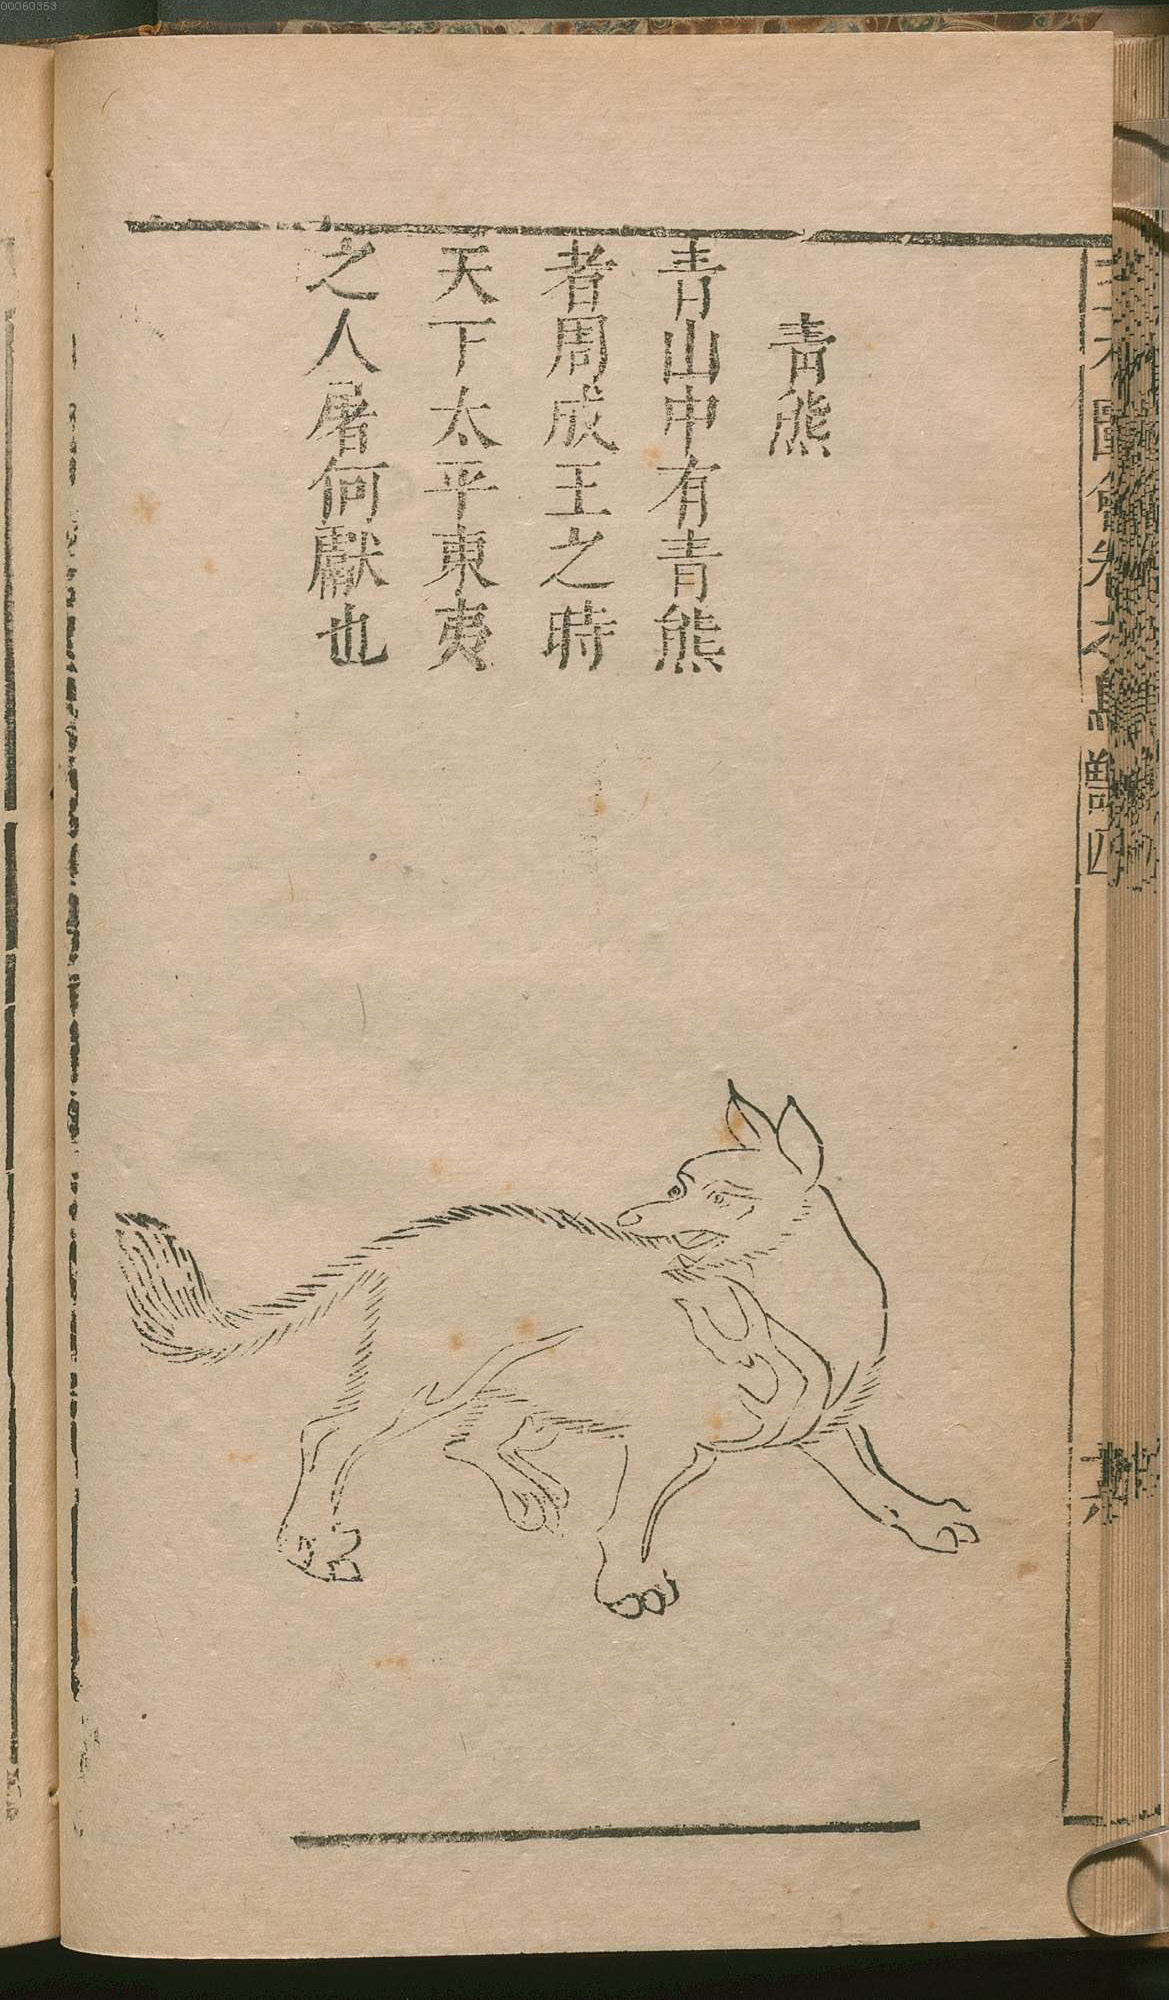 青熊
青山中有青熊
者周成王之時
天下太平東夷
之人屠何獻也
圖會
獸四
00060353